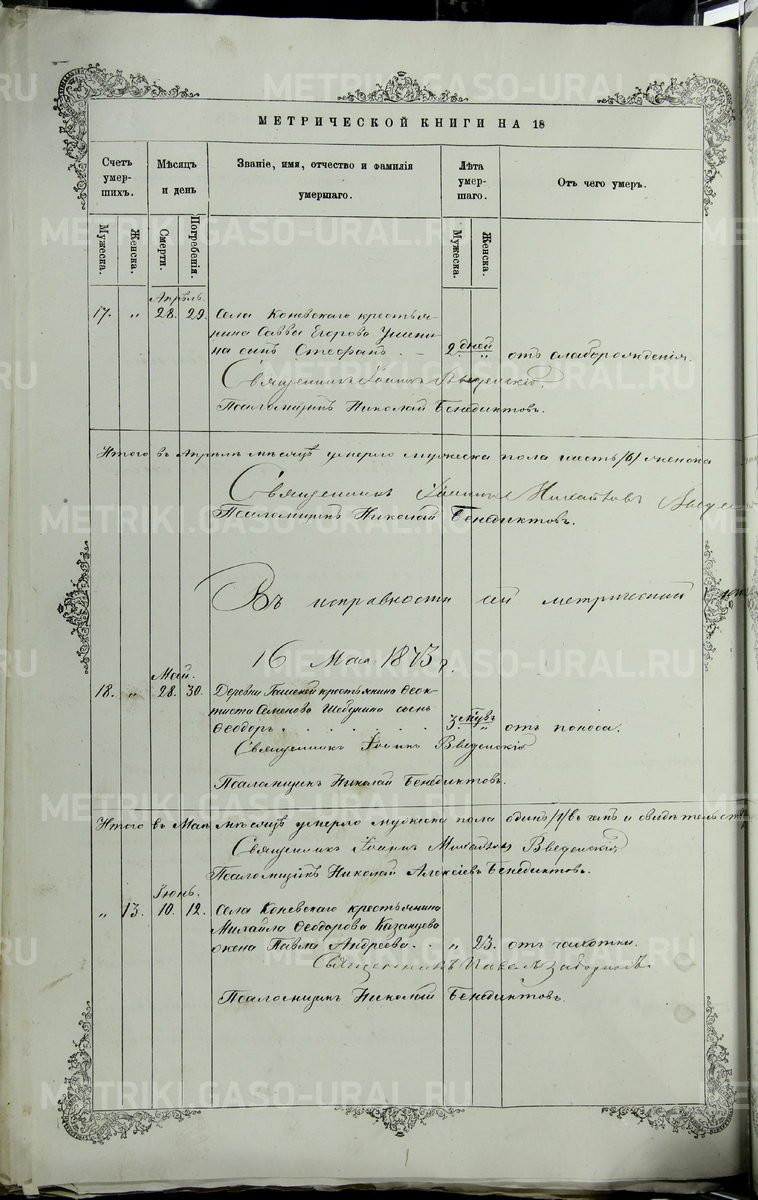 МЕТРИЧЕСКОЙ КНИГИ НА 18
Счетъ умер-шихъ.
Мѣсяцъ и день
Званіе, имя, отчество и фамилія умершаго.
Лѣта умер-шаго.
Отъ чего умеръ.
Мужеска.
Женска.
Смерти.
Погребенія.
Мужеска.
Женска.
Апрѣль.
17. „ 28. 29. Села Коневскаго крестья-
нина Саввы Егорова
на сынъ Стефанъ. 2 дней „ отъ слаборожденія.
Священникъ Іоаннъ Введенскій.
Псаломщикъ Николай Бенедиктовъ.
Итого въ Апрѣлѣ мѣсяцѣ умерло мужеска пола шесть /6/ женска
Священникъ Іоаннъ Михайловъ
Псаломщикъ Николай Бенедиктовъ.
Въ исправности сей метрической
16 Мая 1873 г.
Май.
18. „ 28. 30. Деревни крестьянина Ѳеок-
тиста Семенова сынъ
Ѳеодоръ. 3 „ отъ поноса.
Священникъ Іоаннъ Введенскій
Псаломщикъ Николай Бенедиктовъ.
Итого въ Маѣ мѣсяцѣ умерло мужеска пола одинъ /1/ въ чемъ и свидѣтельств
Священникъ Іоаннъ Михайловъ Введенскій
Псаломщикъ Николай Алексіевъ Бенедиктовъ.
Іюнь.
„ 13. 10. 12. Села Коневскаго крестьянина
Михаила Ѳеодорова Казанцева
жена Павла Андреева. „ 23. отъ чахотки.
Священникъ Павелъ
Псаломщикъ Николай Бенедиктовъ.
METRIKI.GASO-URAL.RU